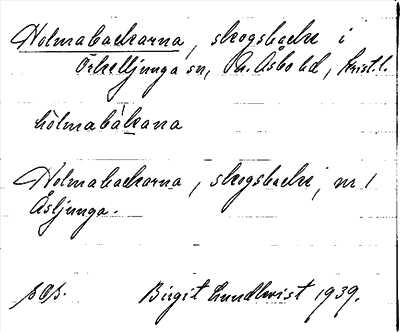 Holmabackarna, skogsbacke i
Örkelljunga sn, N. Åsbo hd, Krist.l.
hòlmabàkana
Holmabackarna, skogsbacke, nr 1
Åsljunga.
Birgit Lundkvist 1939.